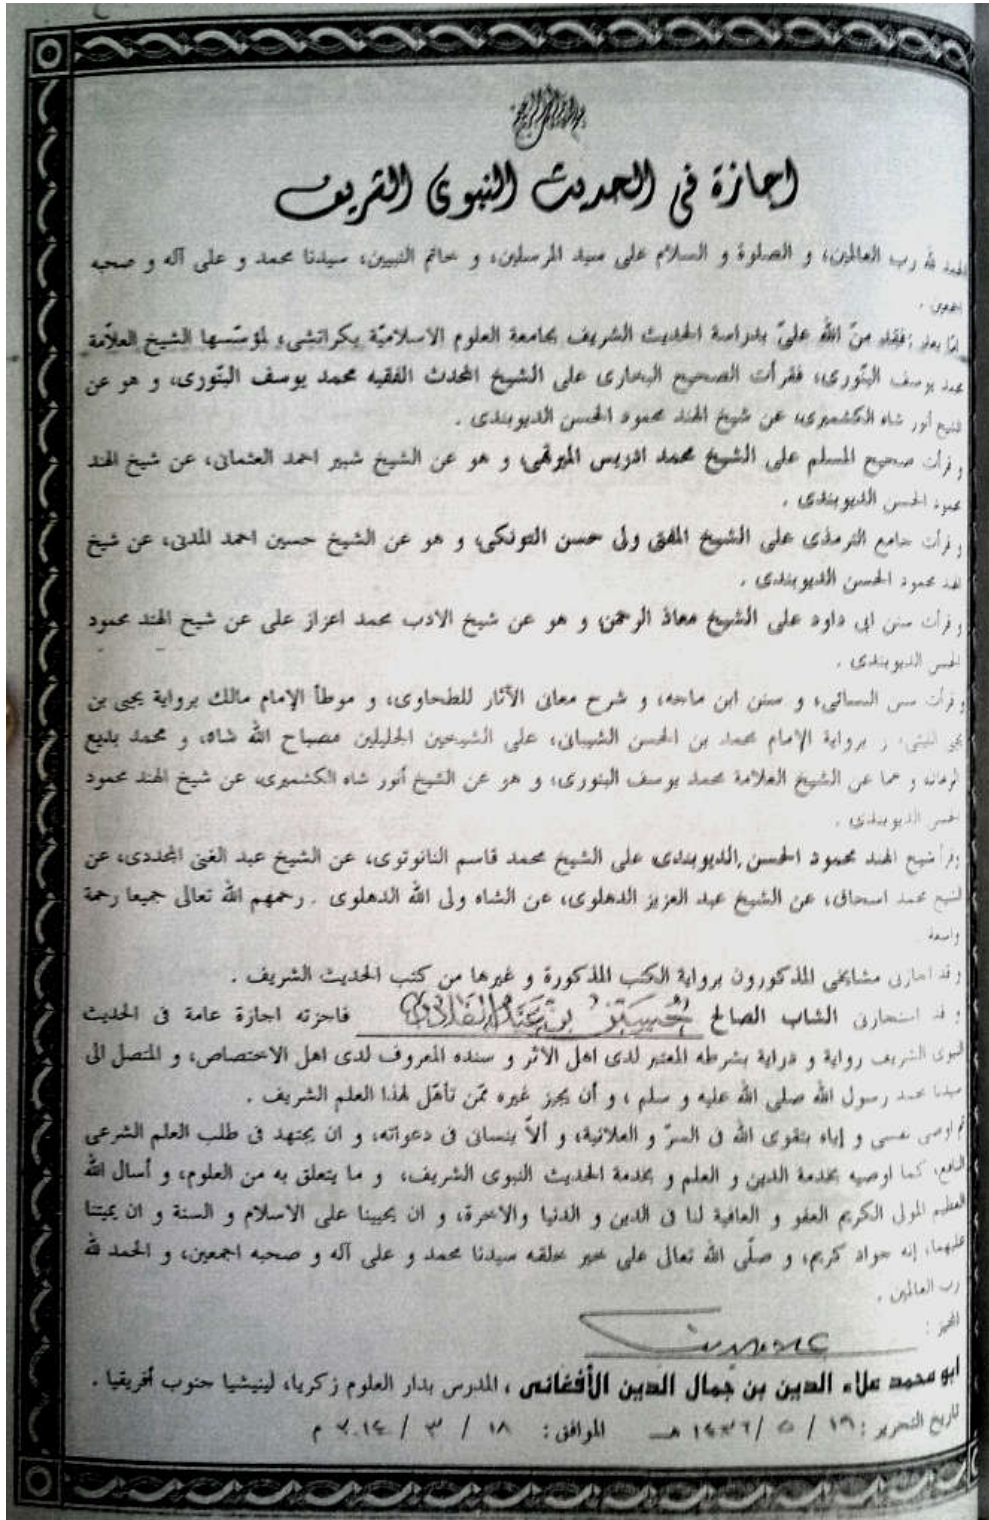 اجازة فى الحديث النبوى الشريف
الحمد لله رب العالمين، و الصلوة و السلام على سيد المرسلين، و خاتم النبيين، سيدنا محمد و على آله و صحبه
اجمعين .
امّا بعد : فقد منّ الله علىّ بدراسة الحديث الشريف بجامعة العلوم الاسلاميّة بكراتشى، لمؤسّسها الشيخ العلاّمة
محمد يوسف البنّورى، فقرأت الصحيح البخارى على الشيخ المحدث الفقيه محمد يوسف البنّورى، و هو عن
الشيخ أنور شاه الكشميرى، عن شيخ الهند محمود الحسن الديوبندى .
و قرأت صحيح المسلم على الشيخ محمد ادريس الميرتهى، و هو عن الشيخ شبير احمد العثمانى، عن شيخ الهند
محمود الحسن الديوبندى .
و قرأت جامع الترمذى على الشيخ المفتى ولى حسن التونكى، و هو عن الشيخ حسين احمد المدنى، عن شيخ
الهند محمود الحسن الديوبندى .
و قرأت سنن ابى داود على الشيخ معاذ الرحمن، و هو عن شيخ الادب محمد اعزاز على عن شيخ الهند محمود
الحسن الديوبندى .
و قرأت سنن النسائى، و سنن ابن ماجه، و شرح معانى الآثار للطحاوى، و موطأ الإمام مالك برواية يحيى بن
يحيى الليثى، و برواية الإمام محمد بن الحسن الشيبانى، على الشيخين الجليلين مصباح الله شاه، و محمد بديع
الزمان، و هما عن الشيخ العلامة محمد يوسف البنورى، و هو عن الشيخ أنور شاه الكشميرى، عن شيخ الهند محمود
الحسن الديوبندى .
وقرأ شيخ الهند محمود الحسن الديوبندى على الشيخ محمد قاسم النانوتوى، عن الشيخ عبد الغنى المجددى، عن
الشيخ محمد اسحاق، عن الشيخ عبد العزيز الدهلوى، عن الشاه ولى الله الدهلوى . رحمهم الله تعالى جميعا رحمة
واسعة
و قد اجازنى مشايخى المذكورون برواية الكتب المذكورة و غيرها من كتب الحديث الشريف .
و قد استجازنى الشاب الصالح حسين بن عبد القادر فاجزته اجازة عامة فى الحديث
النبوى الشريف رواية و دراية بشرطه المعتبر لدى اهل الاثر و سنده المعروف لدى اهل الاختصاص، و المتصل الى
سيدنا محمد رسول الله صلى الله عليه و سلم ، و أن يجيز غيره ممّن تأهّل لهذا العلم الشريف .
ثم اوصى نفسى و إياه بتقوى الله فى السرّ و العلانية، و ألاّ ينسانى فى دعواته، و ان يجتهد فى طلب العلم الشرعى
النافع، كما اوصيه بخدمة الدين و العلم و بخدمة الحديث النبوى الشريف، و ما يتعلق به من العلوم، و أسال الله
العظيم المولى الكريم العفو و العافية لنا فى الدين و الدنيا والاخرة، و ان يحيينا على الاسلام و السنة و ان يميتنا
عليهما، إنه جواد كريم، و صلّى الله تعالى على خير خلقه سيدنا محمد و على آله و صحبه اجمعين، و الحمد لله
رب العالمين .
المجيز :
ابو محمد علاء الدين بن جمال الدين الأفغانى ، المدرس بدار العلوم زكريا، لينيشيا جنوب أفريقيا .
تاريخ التحرير : ١٩ / ٥ / ١٤٣٦ هـ الموافق : ١٨ / ٣ / ٢٠١٤ م